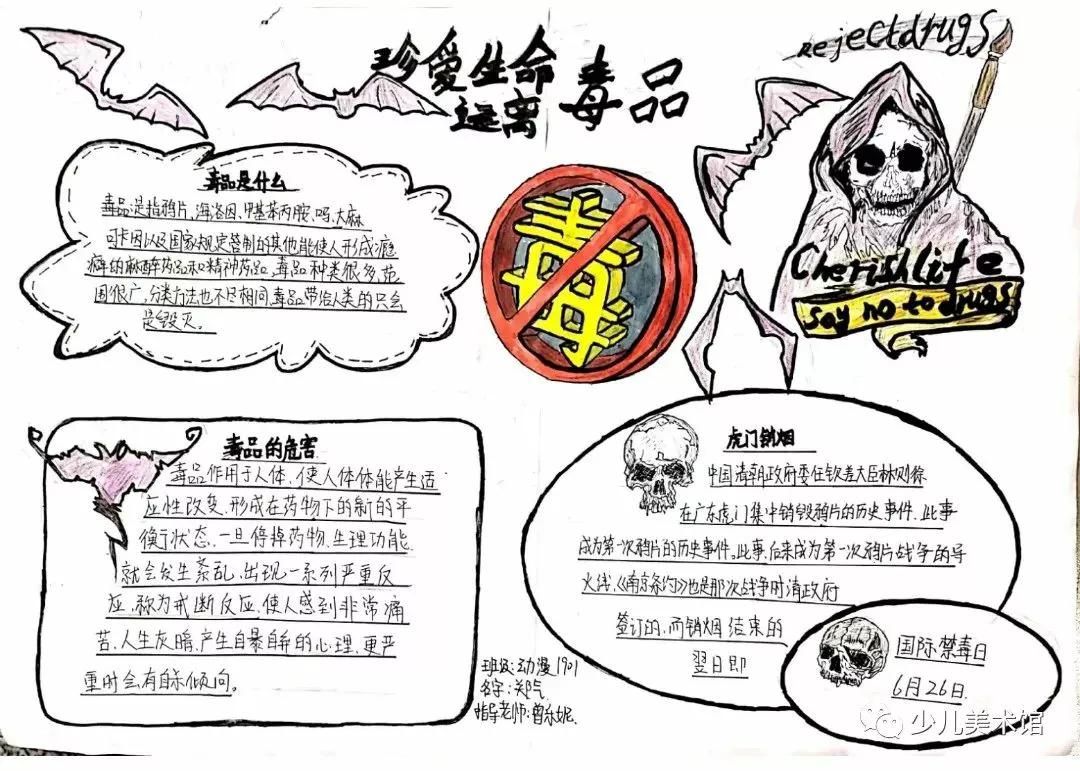 珍爱生命
远离毒品
Reject drugs
Cherish life
Say no to drugs
毒品是什么
毒品是指鸦片,海洛因,甲基苯丙胺,吗,大麻
可卡因以及国家规定管制的其他能使人形成瘾
癖的麻醉药品和精神药品,毒品种类很多,范
围很广,分类方法也不尽相同,毒品带给人类的只会
是毁灭。
毒
毒品的危害
毒品作用于人体,使人体体能产生适
应性改变,形成在药物下的新的平
衡状态,一旦停掉药物,生理功能
就会发生紊乱,出现一系列严重反
应,称为戒断反应,使人感到非常痛
苦,人生灰暗,产生自暴自弃的心理,更严
重时会有自杀倾向。
虎门销烟
中国清朝政府委任钦差大臣林则徐
在广东虎门集中销毁鸦片的历史事件,此事
成为第一次鸦片的历史事件,此事,后来成为第一次鸦片战争的导
火线,《南京条约》也是那次战争时清政府
签订的,而销烟结束的
翌日即
国际禁毒日
6月26日
班级:动漫1901
名字:
指导老师:曾乐妮
少儿美术馆